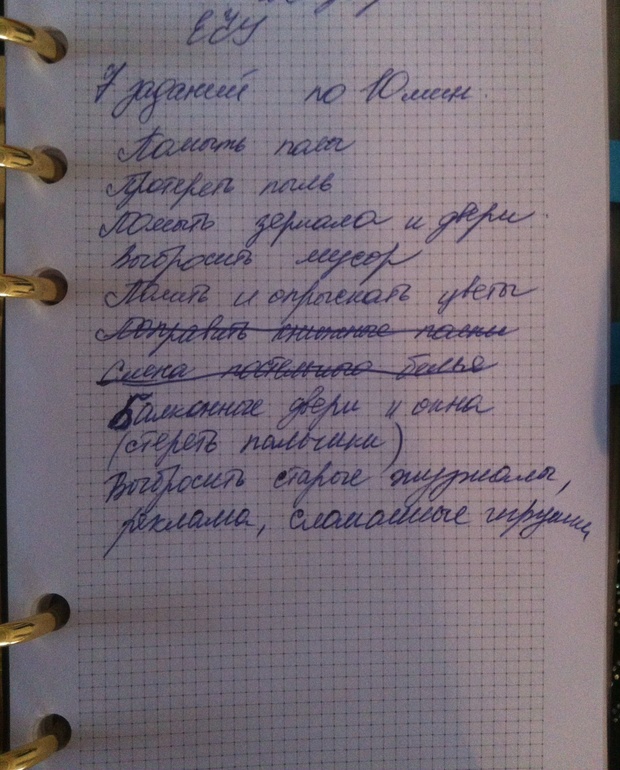 еду
7 заданий по 10 мин.
Помыть полы
Протереть пыль
Помыть зеркала и двери
Выбросить мусор
Полить и опрыскать цветы
Поправить книжные полки
Смена постельного белья
Балконные двери и окна
(стереть пальчики)
Выбросить старые журналы,
реклама, сломанные игрушки